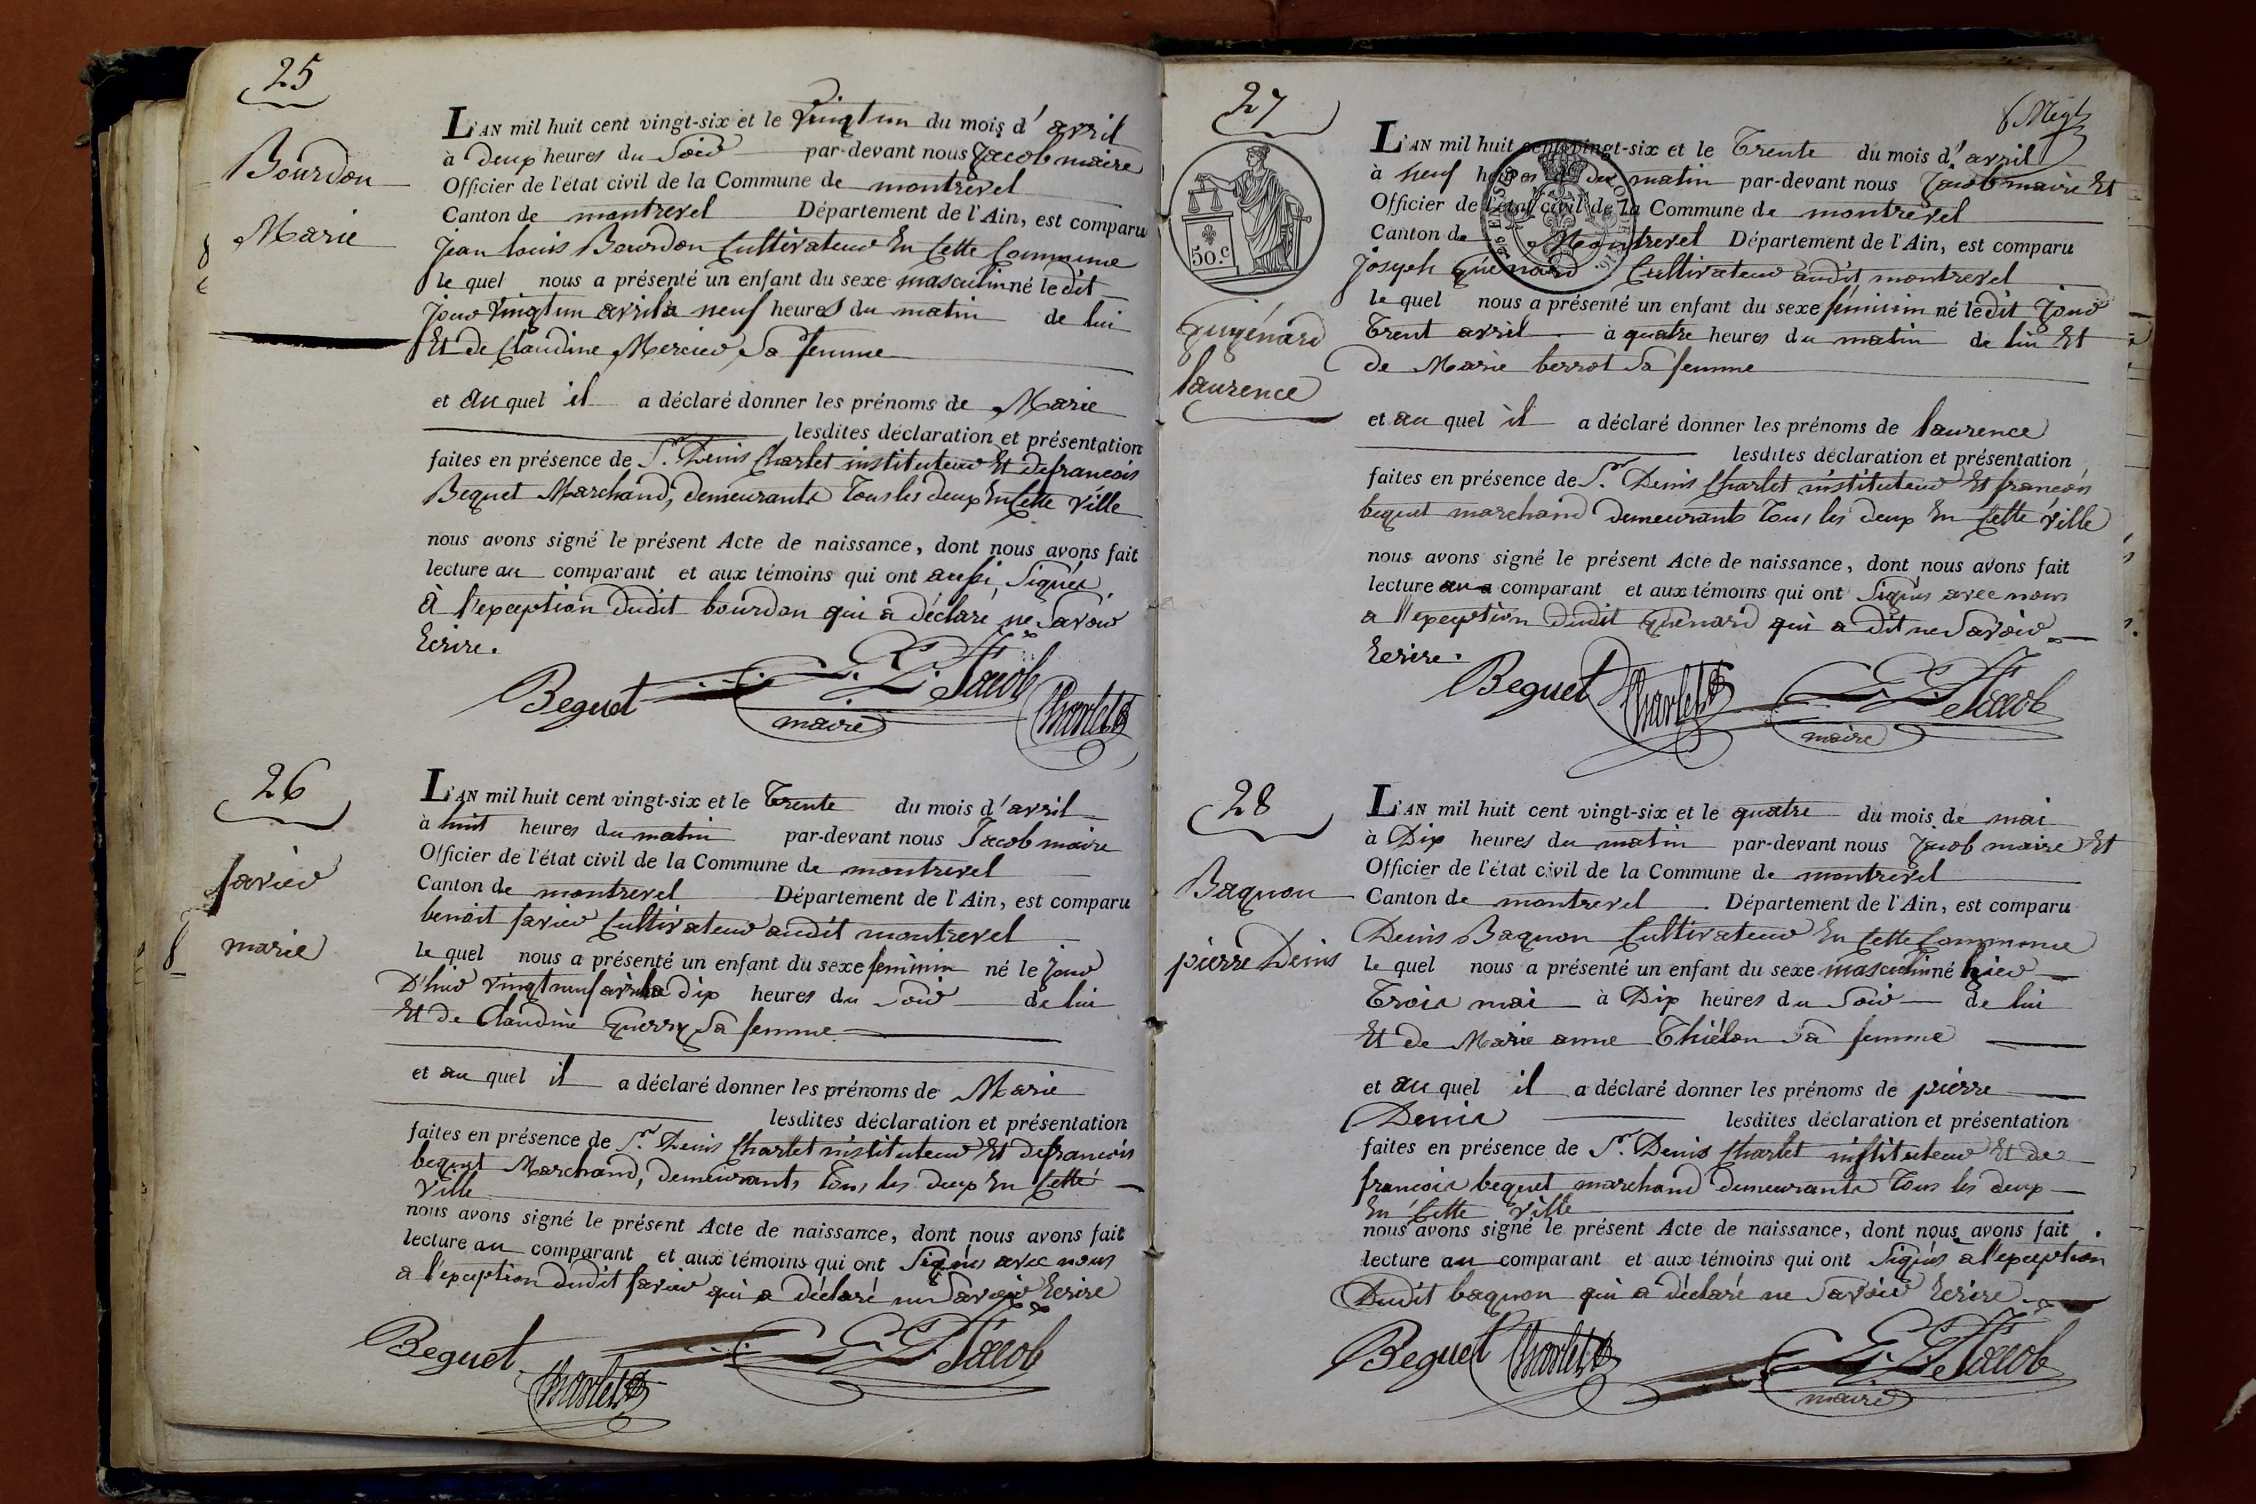 25
Bourdon
Marie
L'AN mil huit cent vingt-six et le Vingt un du mois d'avril
à deux heures du Soir par-devant nous Jacob maire
Officier de l'état civil de la Commune de montrevel
Canton de montrevel Département de l'Ain, est comparu
Jean Louis Bourdon Cultivateur En Cette Commune
le quel nous a présenté un enfant du sexe masculin né ledit
Jour vingt un avril à neuf heures du matin de lui
Et de Claudine Mercier, Sa femme
et au quel il a déclaré donner les prénoms de Marie
lesdites déclaration et présentation
faites en présence de Sr. Denis Charlet instituteur Et de francois
Bequet Marchand, demeurants Tous les deux En Cette Ville
nous avons signé le présent Acte de naissance, dont nous avons fait
lecture au comparant et aux témoins qui ont aussi Signés
à l'exception dudit bourdon qui a déclaré ne Savoir
Ecrire.
Bequet Jacob
maire Charlet
26
favier
marie
L'AN mil huit cent vingt-six et le Trente du mois d'avril
à huit heures du matin par-devant nous Jacob maire
Officier de l'état civil de la Commune de montrevel
Canton de montrevel Département de l'Ain, est comparu
benoit favier Cultivateur audit montrevel
le quel nous a présenté un enfant du sexe feminin né le jour
D'hier vingt neuf avril à dix heures du Soir de lui
Et de Claudine Guerry Sa femme
et au quel il a déclaré donner les prénoms de Marie
lesdites déclaration et présentation
faites en présence de Sr. Denis Charlet instituteur Et de francois
bequet Marchand, demeurants Tous les deux En Cette
Ville
nous avons signé le présent Acte de naissance, dont nous avons fait
lecture au comparant et aux témoins qui ont Signés avec nous
a l'exception dudit favier qui a déclaré ne Savoir Ecrire
Bequet Jacob
Charlet
27
50.c
Guigénard
laurence
L'AN mil huit cent vingt-six et le Trente du mois d'avril
à neuf heures du matin par-devant nous Jacob maire Et
Officier de l'état civil de la Commune de montrevel
Canton de Montrevel Département de l'Ain, est comparu
Joseph Guénard Cultivateur audit montrevel
le quel nous a présenté un enfant du sexe féminin né ledit Jour
Trent avril à quatre heures du matin de lui Et
de Marie berrot Sa femme
et au quel il a déclaré donner les prénoms de laurence
lesdites déclaration et présentation
faites en présence de Sr. Denis Charlet instituteur Et francois
bequet marchand demeurants Tous les deux En Cette Ville
nous avons signé le présent Acte de naissance, dont nous avons fait
lecture au comparant et aux témoins qui ont Signés avec nous
a l'exception dudit Guénard qui a dit ne Savoir
Ecrire.
Bequet Charlet Jacob
maire
28
Baquon
pierre Denis
L'AN mil huit cent vingt-six et le quatre du mois de mai
à Dix heures du matin par-devant nous Jacob maire Et
Officier de l'état civil de la Commune de montrevel
Canton de montrevel Département de l'Ain, est comparu
Denis Baquon Cultivateur En Cette Commune
le quel nous a présenté un enfant du sexe masculin né hier
Trois mai à Dix heures du Soir de lui
Et de Marie anne Thiélon Sa femme
et au quel il a déclaré donner les prénoms de pierre
Denis lesdites déclaration et présentation
faites en présence de Sr. Denis Charlet instituteur Et de
francois bequet marchand demeurants Tous les deux
En Cette Ville
nous avons signé le présent Acte de naissance, dont nous avons fait
lecture au comparant et aux témoins qui ont Signés a l'exception
Dudit baquon qui a déclaré ne Savoir Ecrire.
Bequet Charlet Jacob
maire